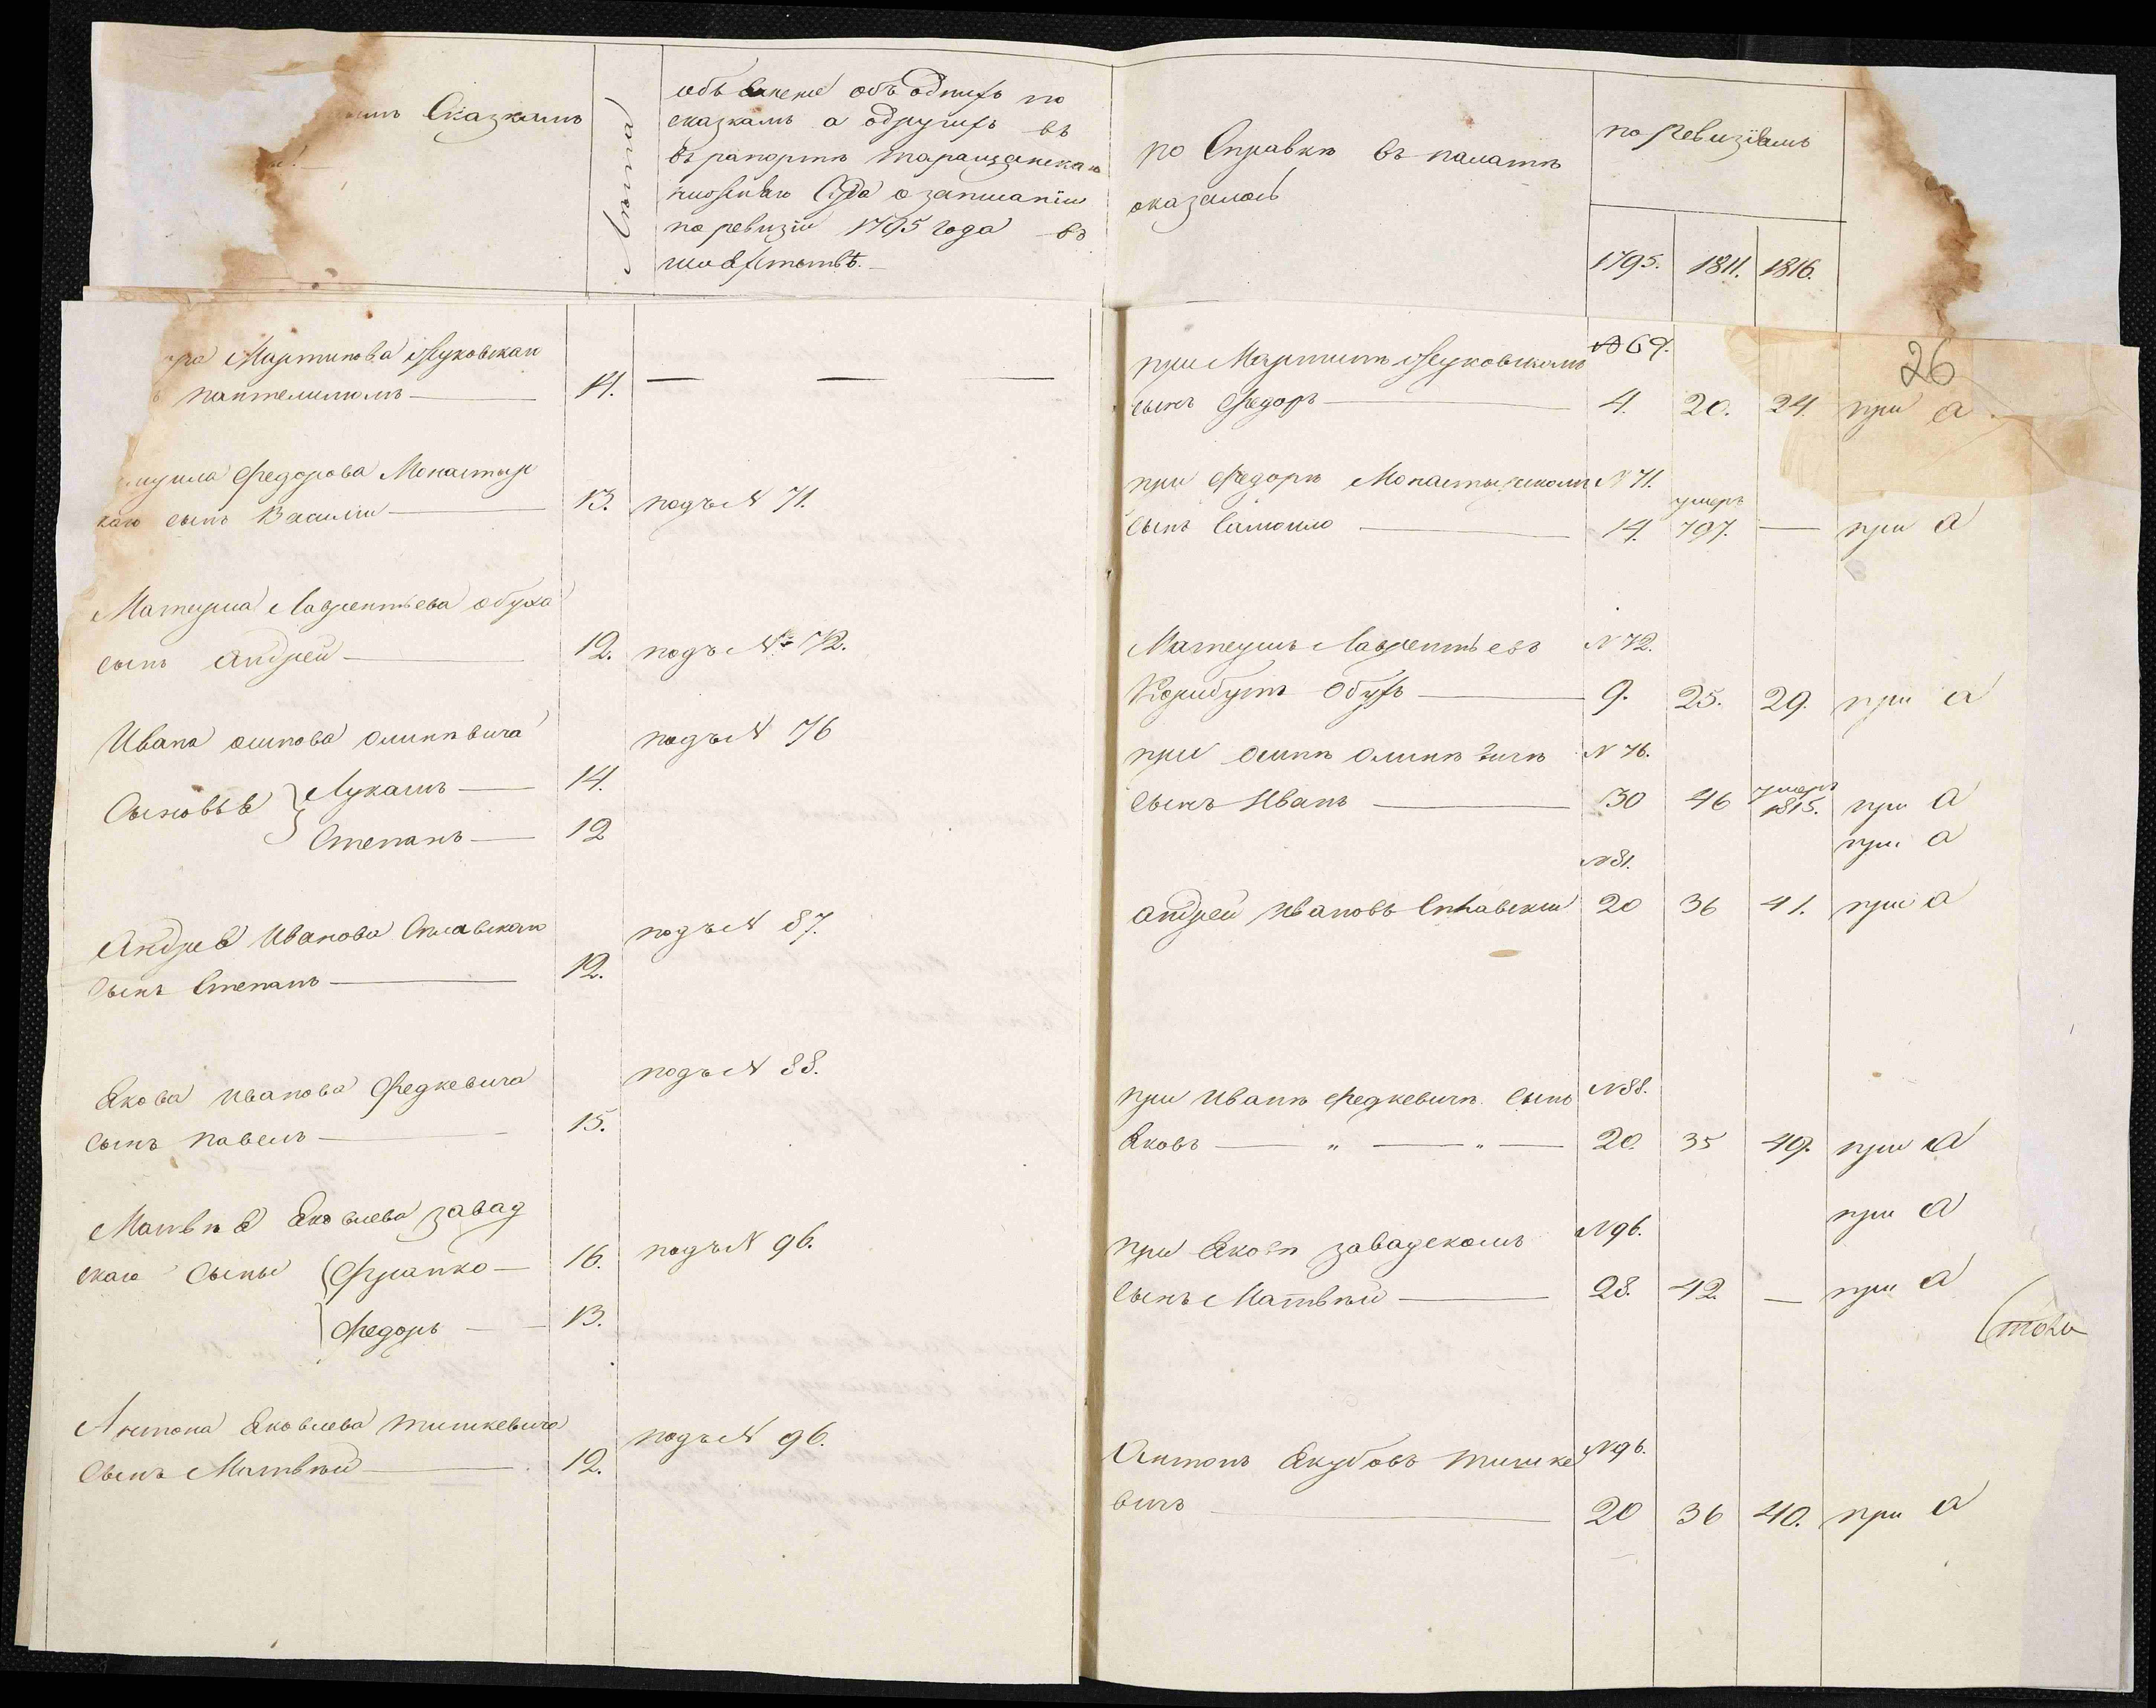 Сказкамъ
Лѣта
объ однихъ по
сказкамъ а одругихъ въ
въ рапортѣ таращанскаго
нижняго Суда о записаніи
по ревизіи 1795 года въ
шляхетствѣ.
по Справкѣ въ палатѣ
оказалось
по ревизіямъ
1795. 1811. 1816.
26
Мартинова Жуковскаго
пантелимонъ 14. — — —
при Мартинѣ Жуковскомъ № 69.
сынъ Федоръ 4. 20. 24. при а
Федорова Монастыр
каго сынъ Василій 13. подъ N 71.
при Федорѣ Монастырскомъ N 71.
сынъ Самойло 14. умеръ 797. — при а
Матеуша Лаврентьева обуха
сынъ андрей 12. подъ № 72.
Матеушъ Лаврентьевъ N 72.
Корибутъ Обухъ 9. 25. 29. при а
Ивана осипова олинѣвича подъ N 76
Сыновья Лукашъ 14.
Степанъ 12
при осипѣ олинѣвичѣ N 76.
сынъ Иванъ 30 46 умеръ 1815. при а
при а
Андрея Иванова подъ N 87.
сынъ Степанъ 12.
N 81.
андрей ивановъ 20 36 41. при а
Якова иванова Федкевича подъ N 88.
сынъ павелъ 15.
при иванѣ Федкевичѣ сынъ N 88.
Яковъ — „ — „ — 20. 35 49. при а
Матвѣя Яковлева завад
скаго сыны Франко 16. подъ N 96.
Федоръ 13.
при а
при Яковѣ завадскомъ N 96.
сынъ Матвѣй 28. 42. — при а
Антона Яковлева тишкевича подъ N 96.
сынъ Матвѣй 12.
Антонъ Якубовъ тишке N 96.
вичъ 20 36 40. при а